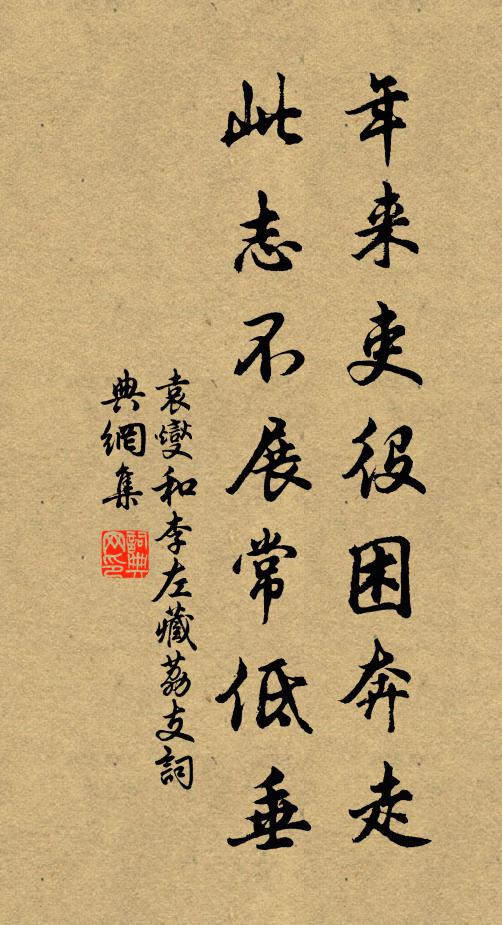 年来吏役困奔走
此志不展常低垂
袁燮和李左藏荔支詞
典網集
詞典网印